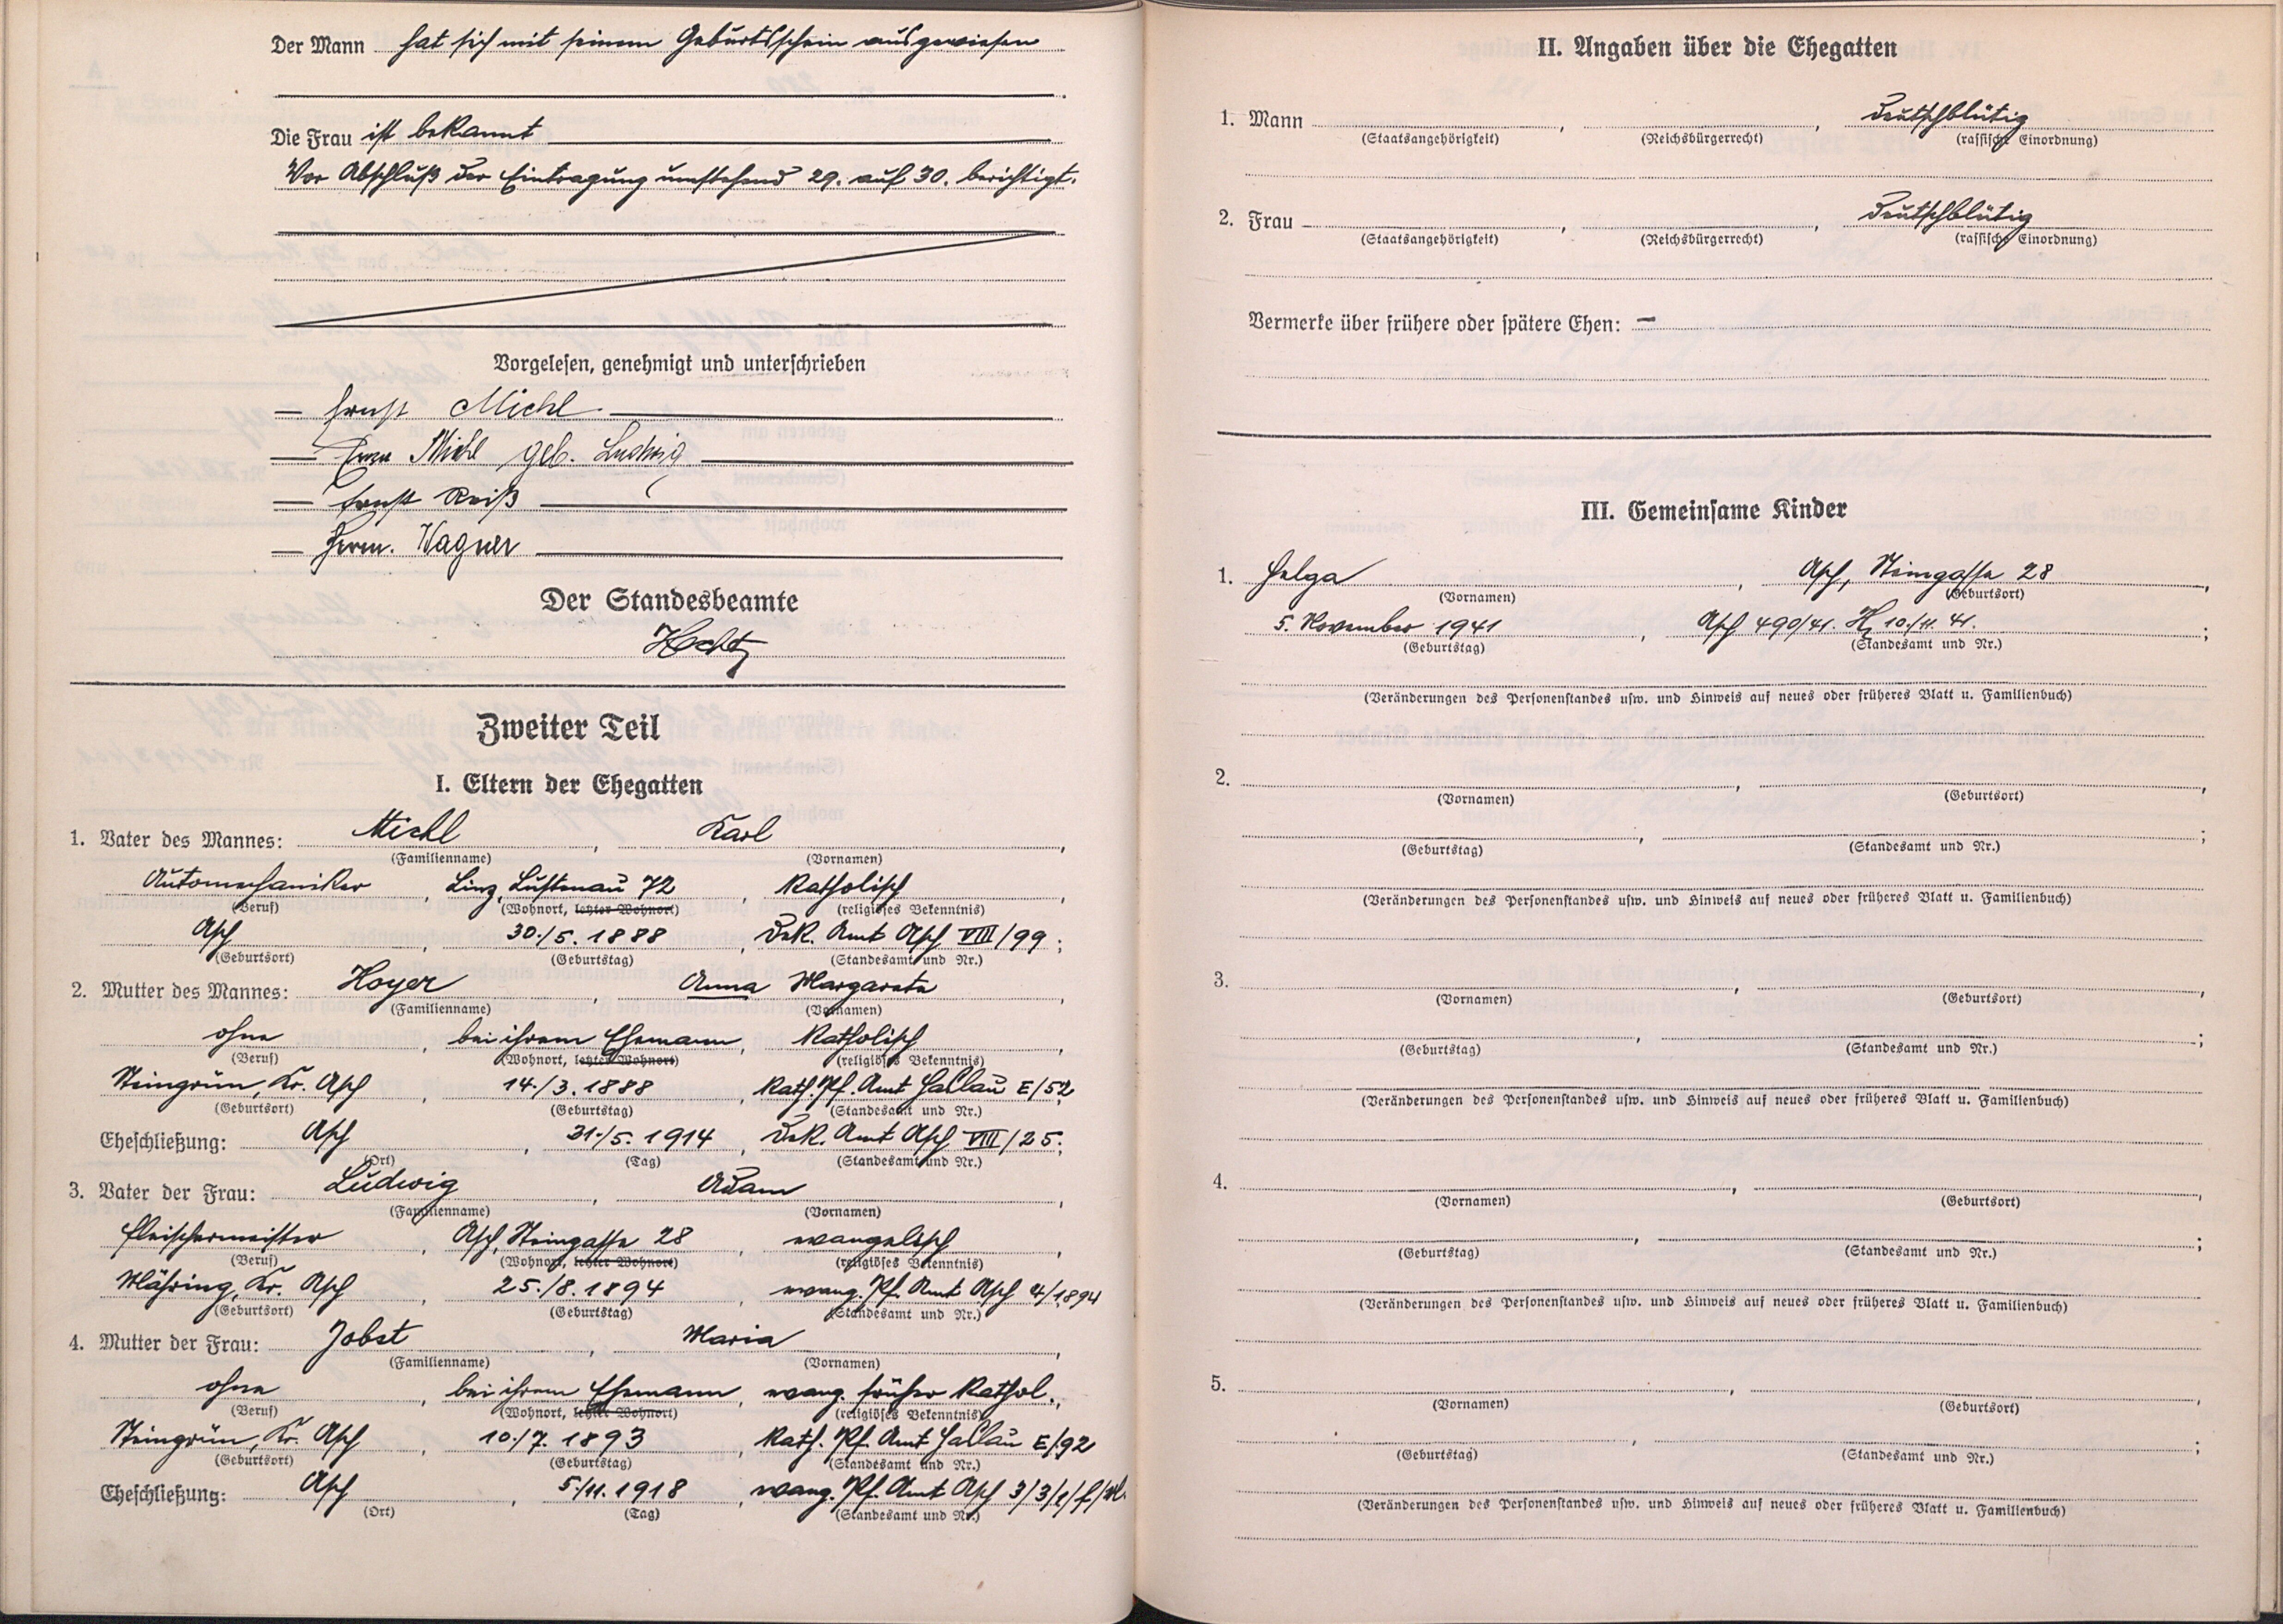 Der Mann hat sich mit seinem Geburtsschein ausgewiesen
Die Frau ist bekannt
Vor Abschluß der Eintragung umstehend 29. auf 30. berichtigt.
Vorgelesen, genehmigt und unterschrieben
— Ernst Michl
— Erna Michl geb. Ludwig
— Ernst Reiß
— Herm. Wagner
Der Standesbeamte
Zweiter Teil
I. Eltern der Ehegatten
1. Vater des Mannes: Michl, Karl,
(Familienname) (Vornamen)
Automechaniker, Linz, Lustenau 72, katholisch,
(Beruf) (Wohnort, letzter Wohnort) (religiöses Bekenntnis)
Asch, 30./5. 1888, Dek. Amt Asch VIII/99;
(Geburtsort) (Geburtstag) (Standesamt und Nr.)
2. Mutter des Mannes: Hoyer, Anna Margareta,
(Familienname) (Vornamen)
ohne, bei ihrem Ehemann, katholisch,
(Beruf) (Wohnort, letzter Wohnort) (religiöses Bekenntnis)
Steingrün, Kr. Asch, 14./3. 1888, Kath. Pf. Amt Haslau E/52
(Geburtsort) (Geburtstag) (Standesamt und Nr.)
Eheschließung: Asch, 31./5. 1914, Dek. Amt Asch VIII/25;
(Ort) (Tag) (Standesamt und Nr.)
3. Vater der Frau: Ludwig, Adam,
(Familienname) (Vornamen)
Fleischermeister, Asch, Steingasse 28, evangelisch,
(Beruf) (Wohnort, letzter Wohnort) (religiöses Bekenntnis)
Mähring, Kr. Asch, 25./8. 1894, evang. Pf. Amt Asch 4/1894
(Geburtsort) (Geburtstag) (Standesamt und Nr.)
4. Mutter der Frau: Jobst, Maria,
(Familienname) (Vornamen)
ohne, bei ihrem Ehemann, evang. früher kathol.,
(Beruf) (Wohnort, letzter Wohnort) (religiöses Bekenntnis)
Steingrün, Kr. Asch, 10./7. 1893, Kath. Pf. Amt Haslau E/92
(Geburtsort) (Geburtstag) (Standesamt und Nr.)
Eheschließung: Asch, 5./11. 1918, evang. Pf. Amt Asch
(Ort) (Tag) (Standesamt und Nr.)
II. Angaben über die Ehegatten
1. Mann , , deutschblütig
(Staatsangehörigkeit) (Reichsbürgerrecht) (rassische Einordnung)
2. Frau , , deutschblütig
(Staatsangehörigkeit) (Reichsbürgerrecht) (rassische Einordnung)
Vermerke über frühere oder spätere Ehen: —
III. Gemeinsame Kinder
1. Helga, Asch, Steingasse 28,
(Vornamen) (Geburtsort)
5. November 1941, Asch 490/41. 10./11. 41.;
(Geburtstag) (Standesamt und Nr.)
(Veränderungen des Personenstandes usw. und Hinweis auf neues oder früheres Blatt u. Familienbuch)
2. , ,
(Vornamen) (Geburtsort)
, ;
(Geburtstag) (Standesamt und Nr.)
(Veränderungen des Personenstandes usw. und Hinweis auf neues oder früheres Blatt u. Familienbuch)
3. , ,
(Vornamen) (Geburtsort)
, ;
(Geburtstag) (Standesamt und Nr.)
(Veränderungen des Personenstandes usw. und Hinweis auf neues oder früheres Blatt u. Familienbuch)
4. , ,
(Vornamen) (Geburtsort)
, ;
(Geburtstag) (Standesamt und Nr.)
(Veränderungen des Personenstandes usw. und Hinweis auf neues oder früheres Blatt u. Familienbuch)
5. , ,
(Vornamen) (Geburtsort)
, ;
(Geburtstag) (Standesamt und Nr.)
(Veränderungen des Personenstandes usw. und Hinweis auf neues oder früheres Blatt u. Familienbuch)